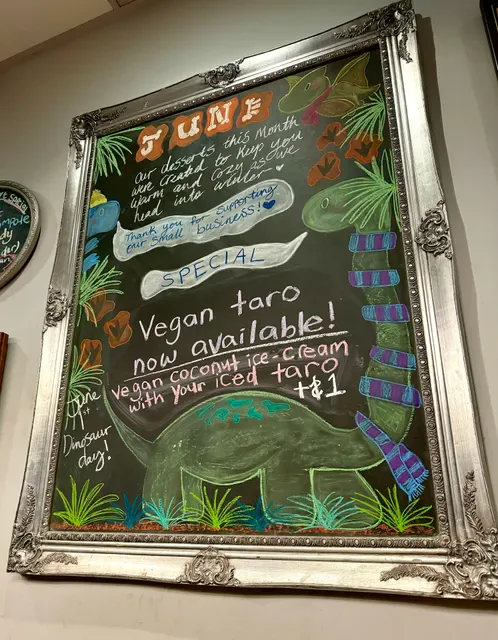 JUNE
Our desserts this Month
were created to keep you
warm and cozy as we
head into winter
Thank you for supporting
our small business!
SPECIAL
Vegan taro
now available!
vegan coconut ice-cream
with your iced taro
+$1
June
1st
Dinosaur
day!